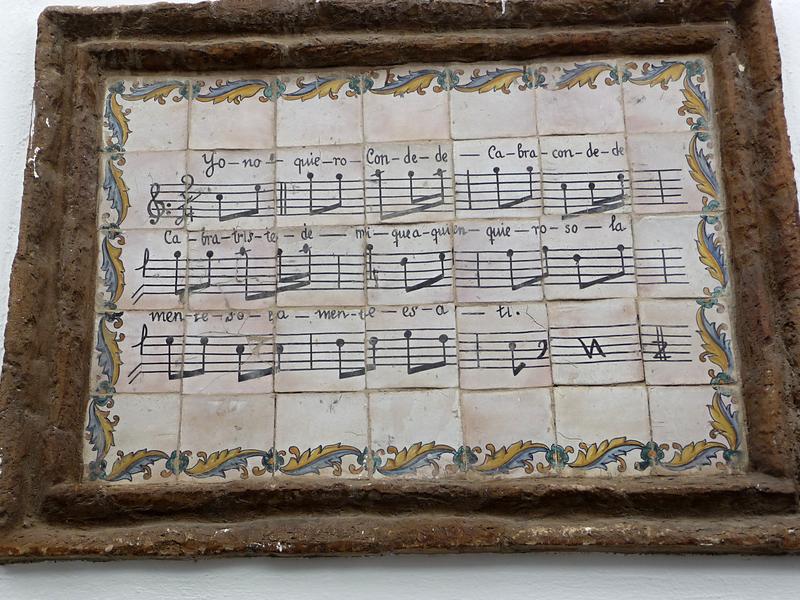 Yo-no- quie-ro- Con-de-de - Ca-bra-con-de-de
Ca-bra-tris-te-de - mi-quea-quien-quie-ro-so-la
men-te-so-la-men-te-es-a-ti.